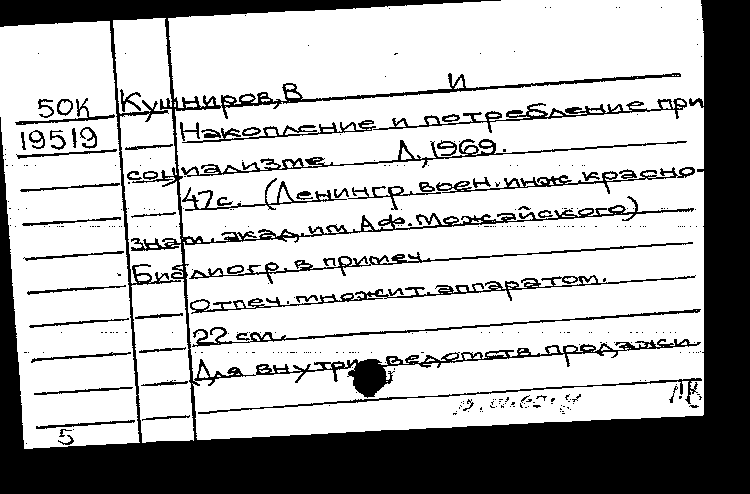 50К Кушниров, В И
19519 Накопление и потребление при
социализме. Л., 1969.
47с. (Ленингр. воен. инж. красно-
знам. акад. им. А.Ф. Можайского)
Библиогр. в примеч.
Отпеч. множит. аппаратом.
22 см.
Для внутриведомств. продажи
5